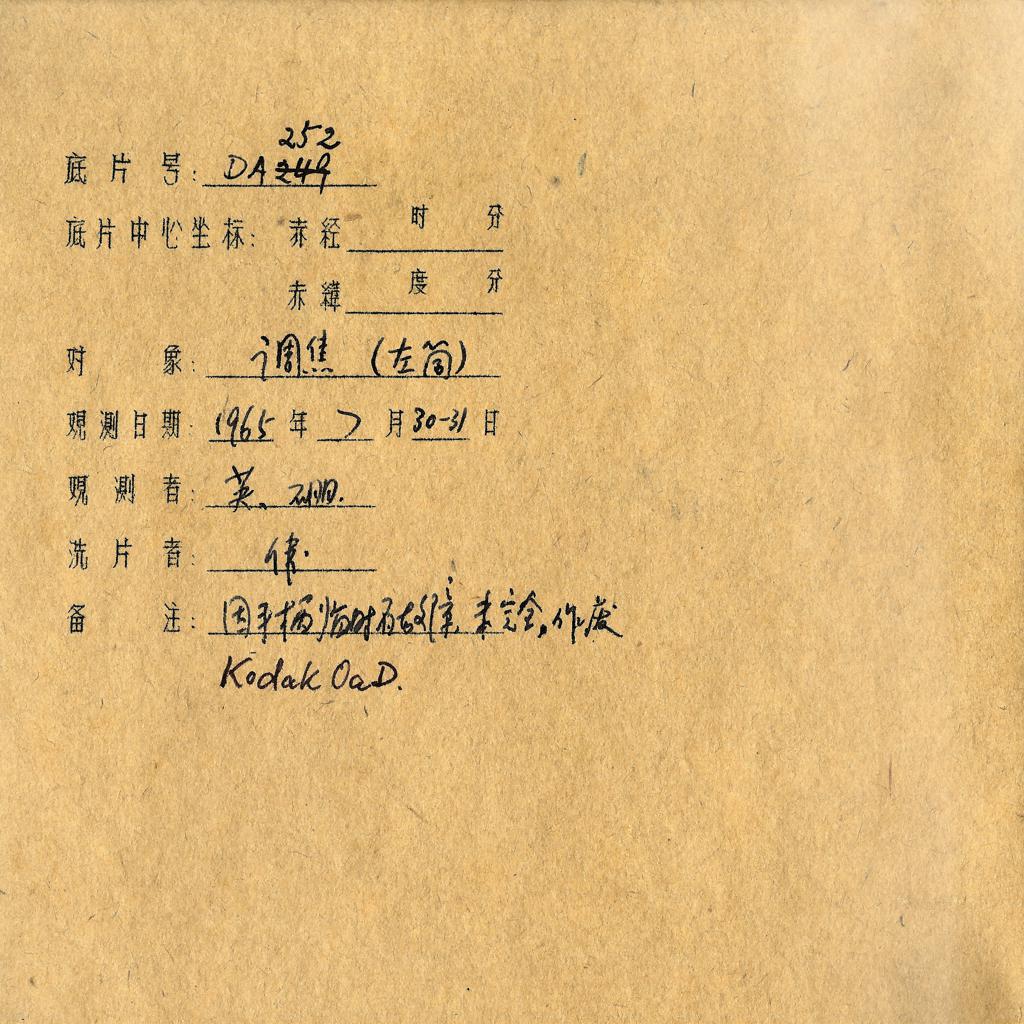 252
底片号: DA 249
底片中心坐标: 赤经 时 分
赤緯 度 分
对象: 调焦 (左筒)
观测日期: 1965 年 7 月 30-31 日
观测者: 英、硼.
洗片者: 伟.
备注: 因平栅临时有故障, 未完全, 作废
Kodak OaD.